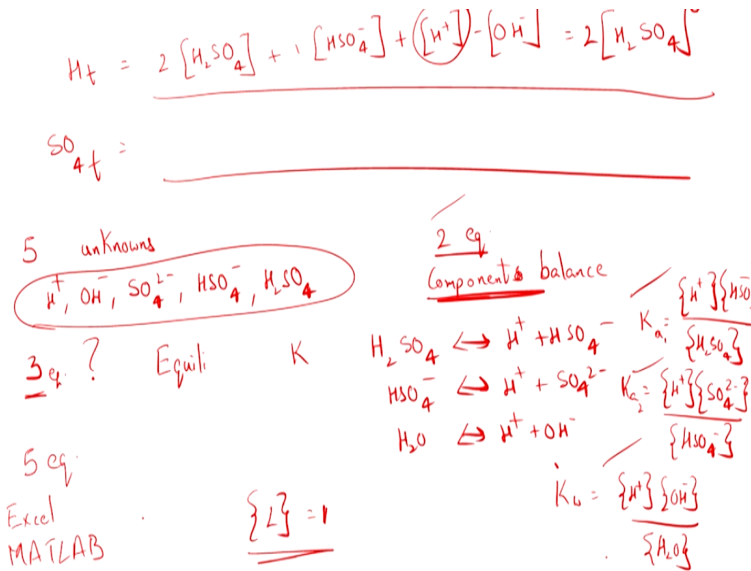 Ht = 2[H₂SO₄] + 1[HSO₄⁻] + [H⁺] - [OH⁻] = 2[H₂SO₄]⁰
SO₄t =
5 unknowns
H⁺, OH⁻, SO₄²⁻, HSO₄⁻, H₂SO₄
3 eq. ? Equili K
5 eq.
Excel
MATLAB
{L} = 1
2 eq.
Components balance
H₂SO₄ ↔ H⁺ + HSO₄⁻
HSO₄⁻ ↔ H⁺ + SO₄²⁻
H₂O ↔ H⁺ + OH⁻
Ka₁ = {H⁺}{HSO / {H₂SO₄}
Ka₂ = {H⁺}{SO₄²⁻} / {HSO₄⁻}
= {H⁺}{OH⁻} / {H₂O}